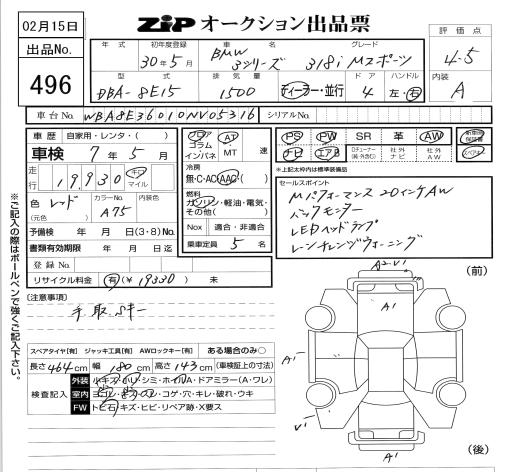 02月15日
出品No.
496
ZiP オークション出品票
年式 初年度登録 車名 グレード
30年5月 BMW 3シリーズ 318i Mスポーツ
型式 排気量 ドア ハンドル
DBA-8E15 1500 ディーラー・並行 4 左・右
評価点
4.5
内装
A
車台No. WBA8E36010NV05316 シリアルNo.
車歴 自家用・レンタ・( )
車検 7年5月
走行 19,930 キロ マイル
色 レッド カラーNo. A75 内装色
(元色)
予備検 年 月 日(3・8)No.
書類有効期限 年 月 日迄
登録No.
リサイクル料金 有(¥19330) 未
フロア コラム インパネ AT MT 速
冷房
無・C・AC・AAC
燃料
ガソリン・軽油・電気・その他( )
Nox 適合・非適合
乗車定員 5名
PS PW SR 革 AW 新車時保証書
ナビ エアB Dチューナー 社外ナビ 社外AW
※上記太枠内は標準装備品
セールスポイント
Mパフォーマンス20インチAW
バックモニター
LEDヘッドランプ
レーンチェンジウォーニング
※ご記入の際はボールペンで強くご記入下さい。
[注意事項]
スペアタイヤ[有] ジャッキ工具[有] AWロックキー[有] ある場合のみ○
長さ464cm 幅180cm 高さ143cm(車検証上の寸法)
検査記入
外装 小キズ・小凹・シミ・ホイルA・ドアミラー(A・ワレ)
室内 ヨゴレ・キズ・スレ・コゲ・穴・キレ・破れ・ウキ
FW トビ石・キズ・ヒビ・リペア跡・X要ス
(前)
A1
A1
V1
A1
(後)